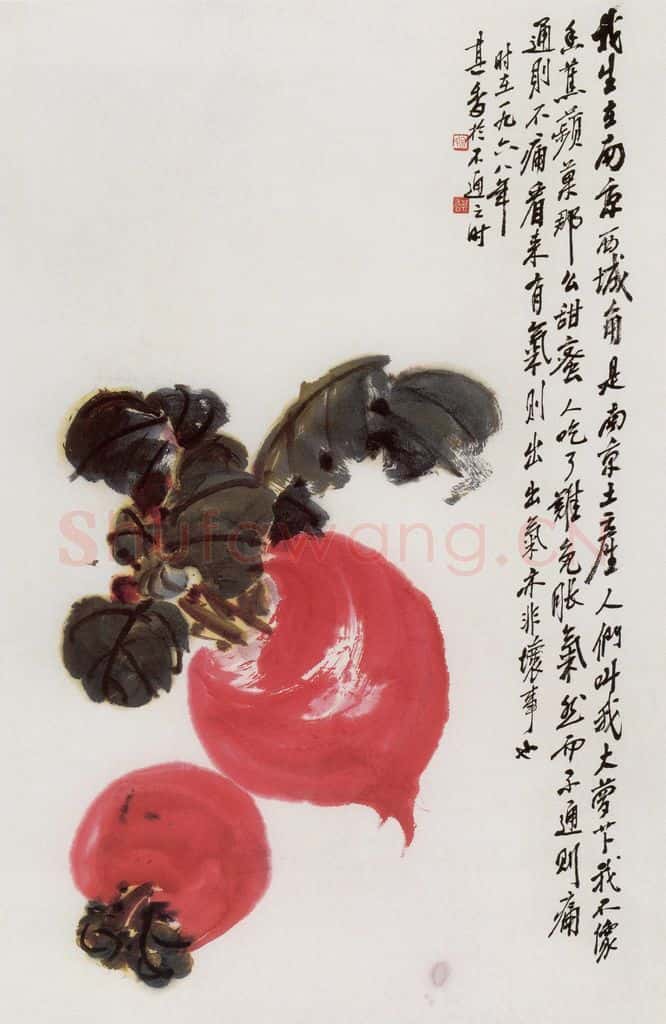 我生在南京西城角是南京土產人們叫我大蘿卜我不像
香蕉蘋菓那么甜蜜人吃了難免脹氣然而不通則痛
通則不痛看来有氣则出出氣亦非壞事也
时在一九六八年
其香於不通之时
Shufawang.CN